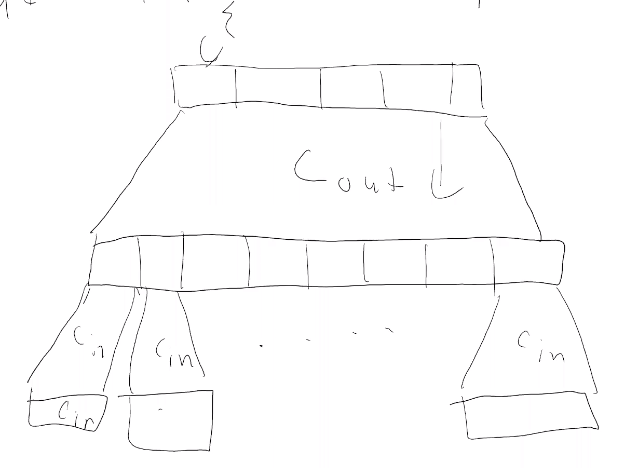 C out
C in C in C in
C in